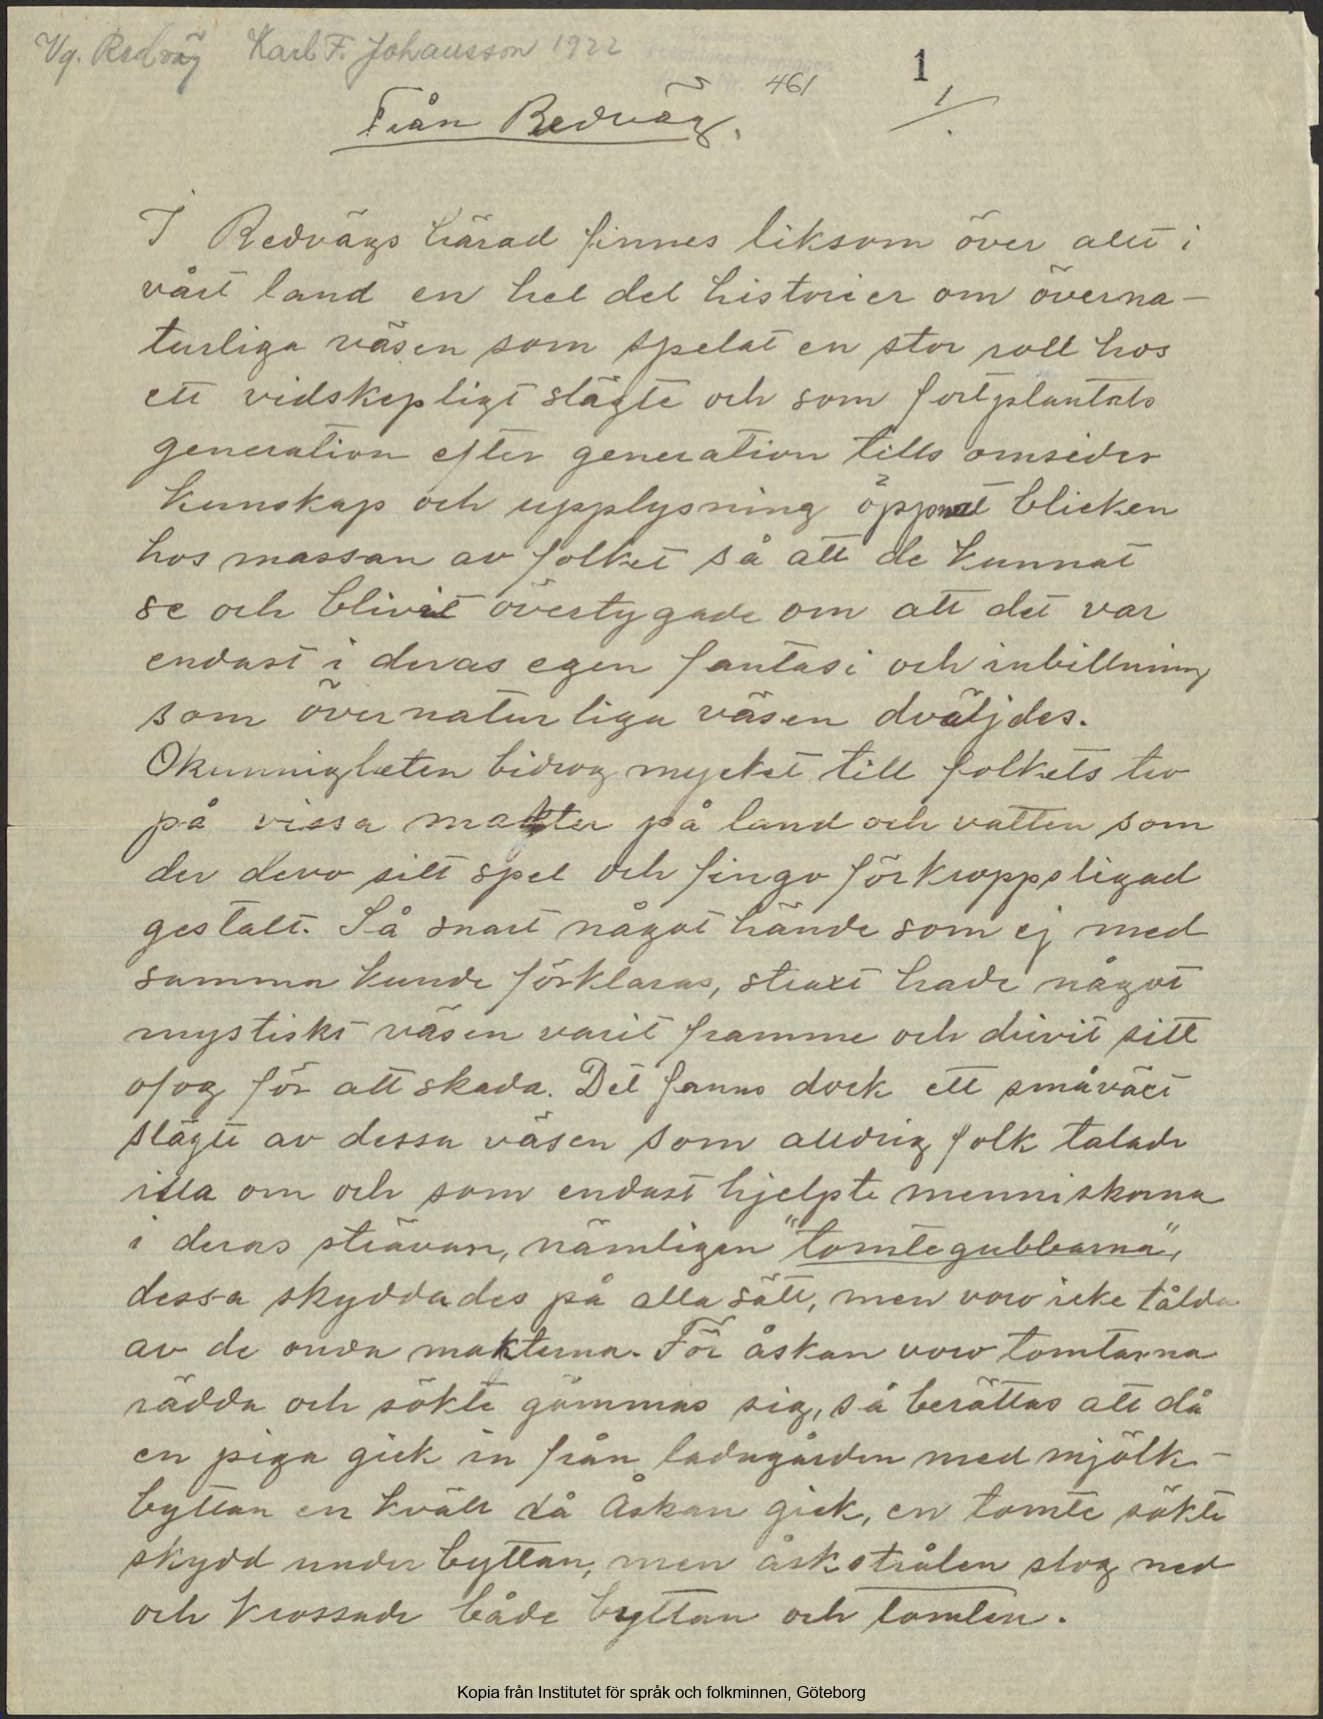 Vg. Redväg Karl F. Johansson 1922
461
1
1/.
Från Redväg.
I Redvägs härad finnes liksom över allt i
vårt land en hel del historier om överna-
turliga väsen som spelat en stor roll hos
ett vidskepligt slägte och som fortplantats
generation efter generation tills omsider
kunskap och upplysning öppnat blicken
hos massan av folket så att de kunnat
se och blivit övertygade om att det var
endast i deras egen fantasi och inbillning
som övernaturliga väsen dväljdes.
Okunnigheten bidrog mycket till folkets tro
på vissa makter på land och vatten som
der drevo sitt spel och fingo förkroppsligad
gestalt. Så snart något hände som ej med
samma kunde förklaras, straxt hade något
mystiskt väsen varit framme och drivit sitt
ofog för att skada. Det fanns dock ett småväxt
slägte av dessa väsen som alldrig folk talade
illa om och som endast hjelpte menniskorna
i deras strävan, nämligen "tomtegubbarna",
dessa skyddades på alla sätt, men voro icke tålda
av de onda makterna. För åskan voro tomtarna
rädda och sökte gömmas sig, så berättas att då
en piga gick in från ladugården med mjölk-
byttan en kväll då åskan gick, en tomte sökte
skydd under byttan, men åskstrålen slog ned
och krossade både byttan och tomten.
Kopia från Institutet för språk och folkminnen, Göteborg